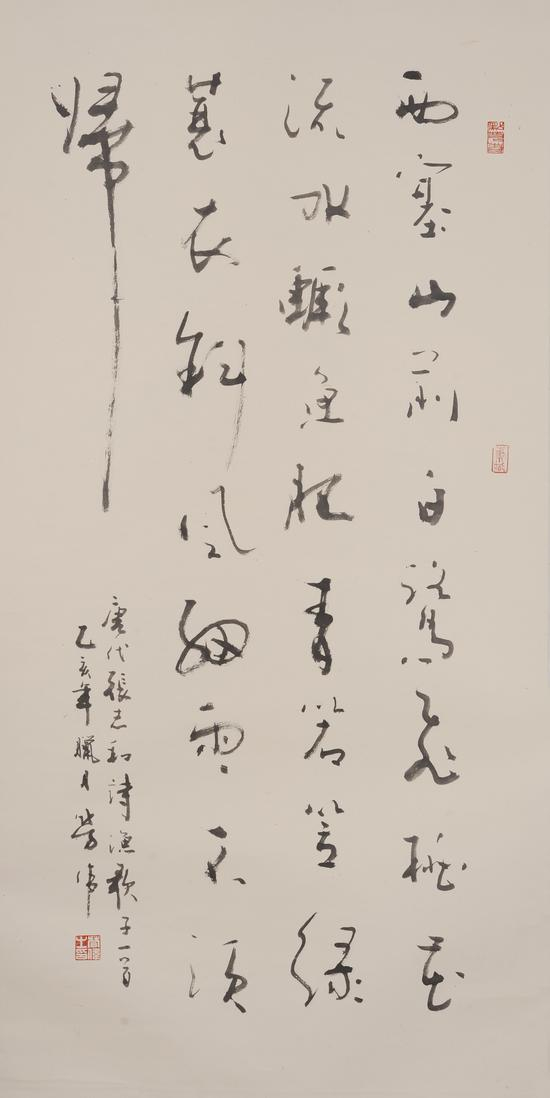 西塞山前白鷺飛桃花
流水鱖魚肥青箬笠綠
蓑衣斜風細雨不須
帰
唐代張志和詩漁歌子一首
乙亥年臘月